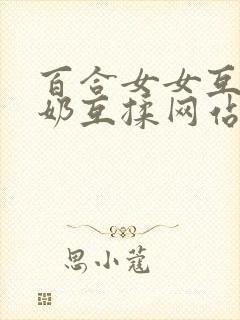 百合女女互
奶互揉网佔
思小蔻